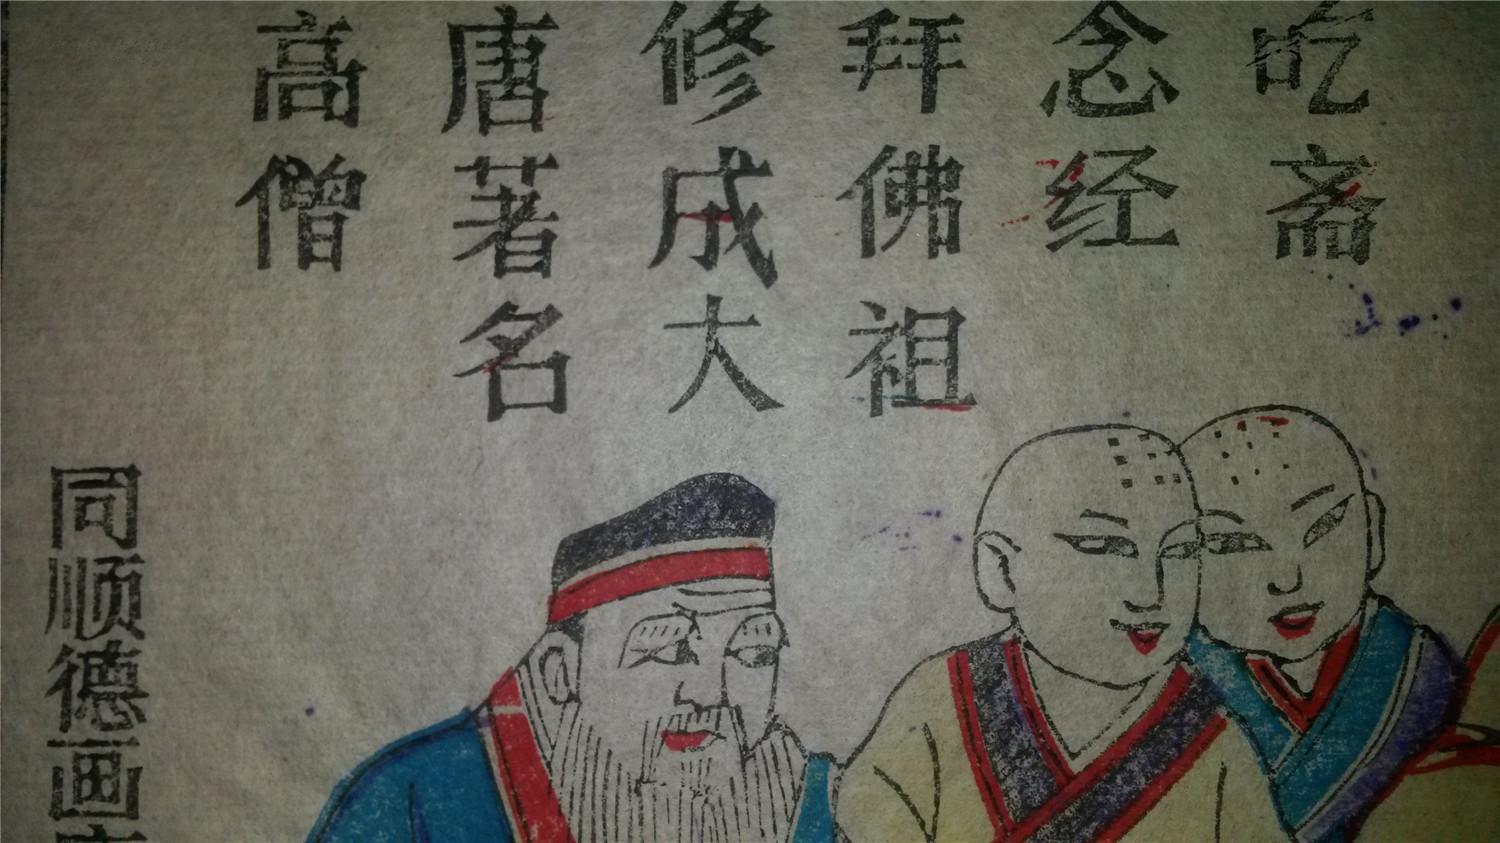 吃斋
念经
拜佛祖
修成大
唐著名
高僧
同顺德画